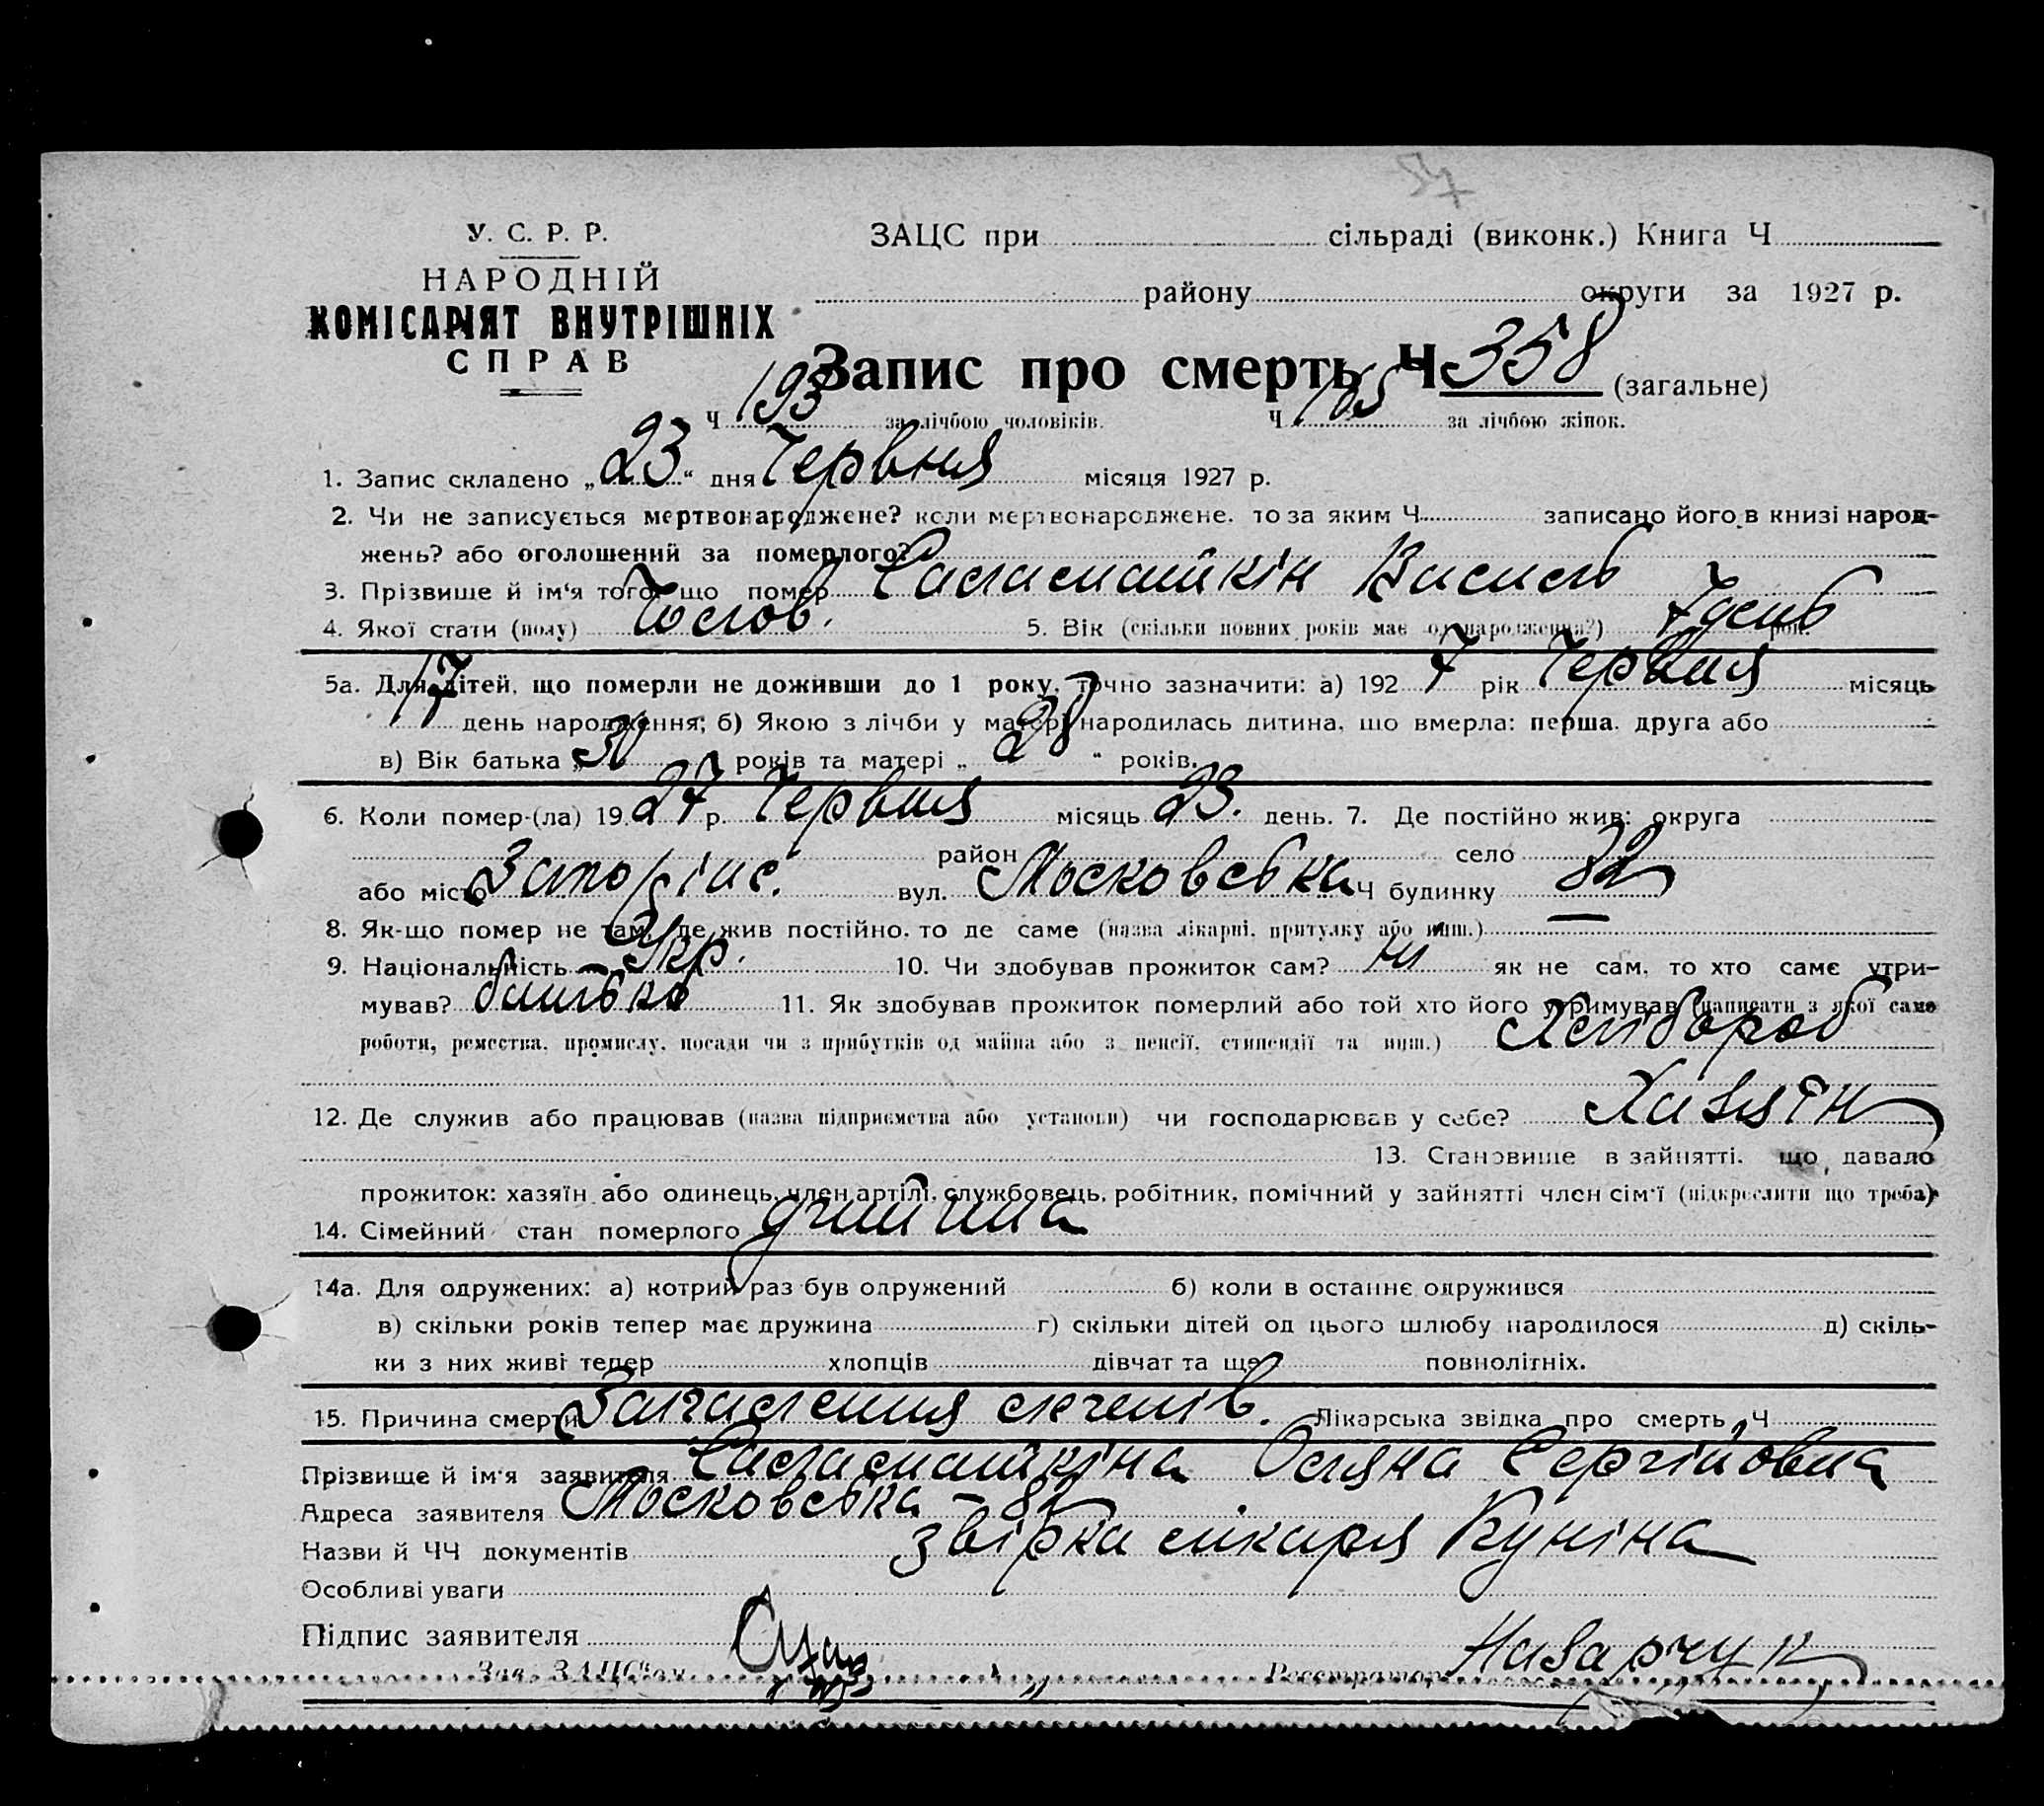 54
У. С. Р. Р.
НАРОДНІЙ
КОМІСАРІЯТ ВНУТРІШНІХ
СПРАВ
ЗАЦС при сільраді (виконк.) Книга Ч
району округи за 1927 р.
Запис про смерть Ч 358 (загальне)
Ч 193 за лічбою чоловіків. Ч 165 за лічбою жінок.
1. Запис складено „23“ дня Червня місяця 1927 р.
2. Чи не записується мертвонароджене? коли мертвонароджене, то за яким Ч записано його в книзі народ-
жень? або оголошений за померлого?
3. Прізвище й ім'я того, що помер Саламашкін Василь
4. Якої стати (полу) Чолов. 5. Вік (скільки повних років має од народження?) 7 день рок.
5а. Для дітей, що померли не доживши до 1 року, точно зазначити: а) 192 7 рік Червня місяць
17 день народження; б) Якою з лічби у матері народилась дитина, що вмерла: перша, друга або
в) Вік батька „30 років та матері „28“ років.
6. Коли помер-(ла) 19 27 р. Червня місяць 23. день. 7. Де постійно жив: округа
район село
або місто Запоріже. вул. Московська Ч будинку 82
8. Як-що помер не там, де жив постійно, то де саме (назва лікарні, притулку або инш.) —
9. Національність Укр. 10. Чи здобував прожиток сам? ні як не сам, то хто саме утри-
мував? батько 11. Як здобував прожиток померлий або той хто його утримував (написати з якої само
роботи, ремества, промислу, посади чи з прибутків од майна або з пенсії, стипендії та инш.) Хлібороб
12. Де служив або працював (назва підприємства або установи) чи господарював у себе? Хазяїн
13. Становище в зайнятті, що давало
прожиток: хазяїн або одинець, член артілі, службовець, робітник, помічний у зайнятті член сім'ї (підкреслити що треба)
14. Сімейний стан померлого дитина
14а. Для одружених: а) котрий раз був одружений б) коли в останнє одружився
в) скільки років тепер має дружина г) скільки дітей од цього шлюбу народилося д) скіль-
ки з них живі тепер хлопців дівчат та ще повнолітніх.
15. Причина смерти Запалення легенів. Лікарська звідка про смерть Ч
Прізвище й ім'я заявителя Саламашкіна Оляна Сергійовна
Адреса заявителя Московська – 82
Назви й ЧЧ документів звірка лікаря Куніна
Особливі уваги
Підпис заявителя
Зав. ЗАЦС'ом Реєстратор Назарчук